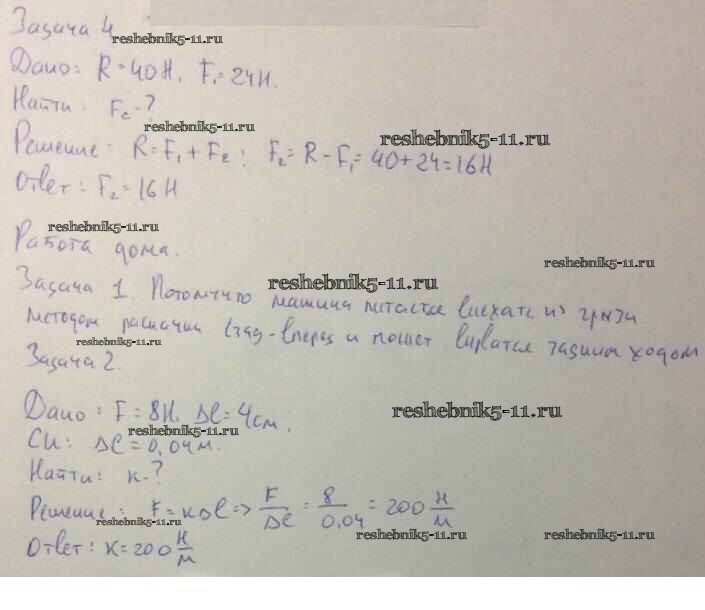 Задача 4
reshebnik5-11.ru
Дано: R = 40Н, F₁ = 24Н.
Найти: F₂ - ?
reshebnik5-11.ru
reshebnik5-11.ru
Решение: R = F₁ + F₂; F₂ = R - F₁ = 40 + 24 = 16Н
Ответ: F₂ = 16Н
reshebnik5-11.ru
Работа дома.
reshebnik5-11.ru
reshebnik5-11.ru
Задача 1. Потому что машина питается выехать из грязи
методом раскачки взад-вперед и может вирватся задним ходом
reshebnik5-11.ru
Задача 2.
Дано: F = 8Н. Δl = 4см.
reshebnik5-11.ru
reshebnik5-11.ru
СИ: Δl = 0,04м.
Найти: к - ?
Решение: F = кΔl => F/Δl = 8/0,04 = 200 Н/м
reshebnik5-11.ru
reshebnik5-11.ru
reshebnik5-11.ru
Ответ: к = 200 Н/м